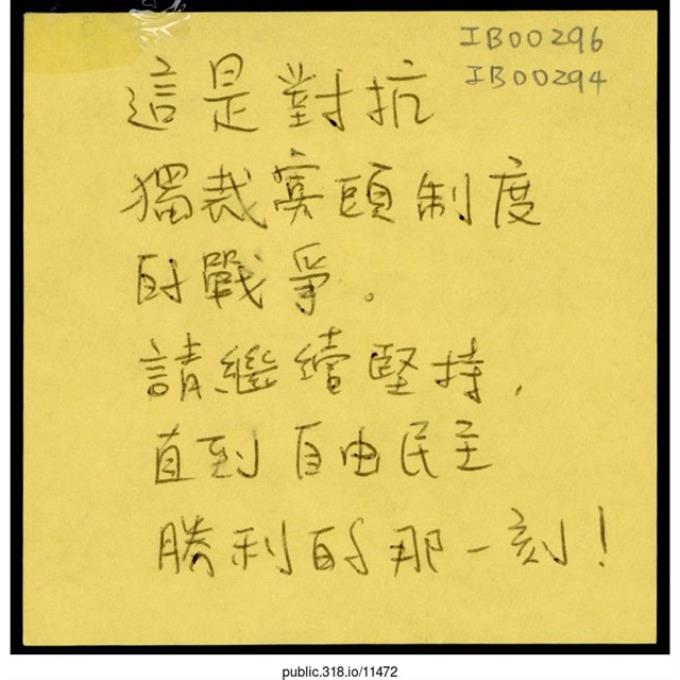 IB00296
IB00294
這是對抗
獨裁寡頭制度
的戰爭。
請繼續堅持,
直到自由民主
勝利的那一刻!
public.318.io/11472